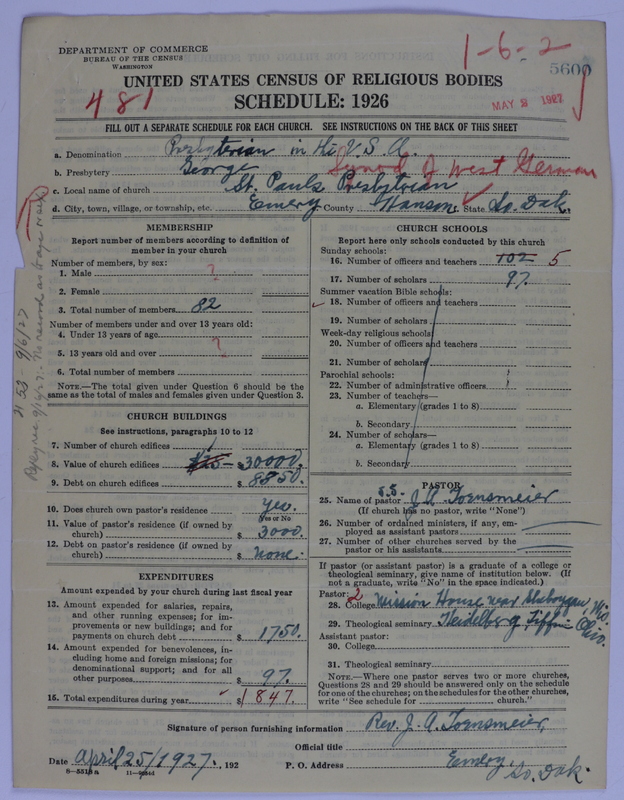 DEPARTMENT OF COMMERCE
BUREAU OF THE CENSUS
WASHINGTON
1-6-2
5600
UNITED STATES CENSUS OF RELIGIOUS BODIES
481
SCHEDULE: 1926
MAY 2 1927
FILL OUT A SEPARATE SCHEDULE FOR EACH CHURCH. SEE INSTRUCTIONS ON THE BACK OF THIS SHEET
a. Denomination Presbyterian in the U.S.A.
b. Presbytery George Synod of West German
c. Local name of church St. Pauls Presbyterian
d. City, town, village, or township, etc. Emery County Hanson State So. Dak.
MEMBERSHIP
Report number of members according to definition of
member in your church
Number of members, by sex:
1. Male ?
2. Female
3. Total number of members 82
Number of members under and over 13 years old:
4. Under 13 years of age
5. 13 years old and over ?
6. Total number of members
NOTE.—The total given under Question 6 should be the
same as the total of males and females given under Question 3.
CHURCH BUILDINGS
See instructions, paragraphs 10 to 12
7. Number of church edifices 1
8. Value of church edifices $30000.
9. Debt on church edifices $ 8350.
10. Does church own pastor's residence yes.
Yes or No
11. Value of pastor's residence (if owned by
church) $ 3000.
12. Debt on pastor's residence (if owned by
church) $ none.
EXPENDITURES
Amount expended by your church during last fiscal year
13. Amount expended for salaries, repairs,
and other running expenses; for im-
provements or new buildings; and for
payments on church debt $ 1750.
14. Amount expended for benevolences, in-
cluding home and foreign missions; for
denominational support; and for all
other purposes $ 97.
15. Total expenditures during year $ 1847.
CHURCH SCHOOLS
Report here only schools conducted by this church
Sunday schools:
16. Number of officers and teachers 102 5
17. Number of scholars 97.
Summer vacation Bible schools:
18. Number of officers and teachers
19. Number of scholars
Week-day religious schools:
20. Number of officers and teachers
21. Number of scholars
Parochial schools:
22. Number of administrative officers
23. Number of teachers—
a. Elementary (grades 1 to 8)
b. Secondary
24. Number of scholars—
a. Elementary (grades 1 to 8)
b. Secondary
PASTOR
25. Name of pastor J. A. Toensmeier
(If church has no pastor, write "None")
26. Number of ordained ministers, if any, em-
ployed as assistant pastors
27. Number of other churches served by the
pastor or his assistants
If pastor (or assistant pastor) is a graduate of a college or
theological seminary, give name of institution below. (If
not a graduate, write "No" in the space indicated.)
Pastor: 2
28. College Mission House near Sheboygan Wis.
29. Theological seminary Heidelberg, Tiffin Ohio.
Assistant pastor:
30. College
31. Theological seminary
NOTE.—Where one pastor serves two or more churches,
Questions 28 and 29 should be answered only on the schedule
for one of the churches; on the schedules for the other churches,
write "See schedule for church."
Signature of person furnishing information Rev. J. A. Toensmeier,
Official title
Date April 25/1927., 192
P. O. Address Emery, So. Dak.
8—5518 a